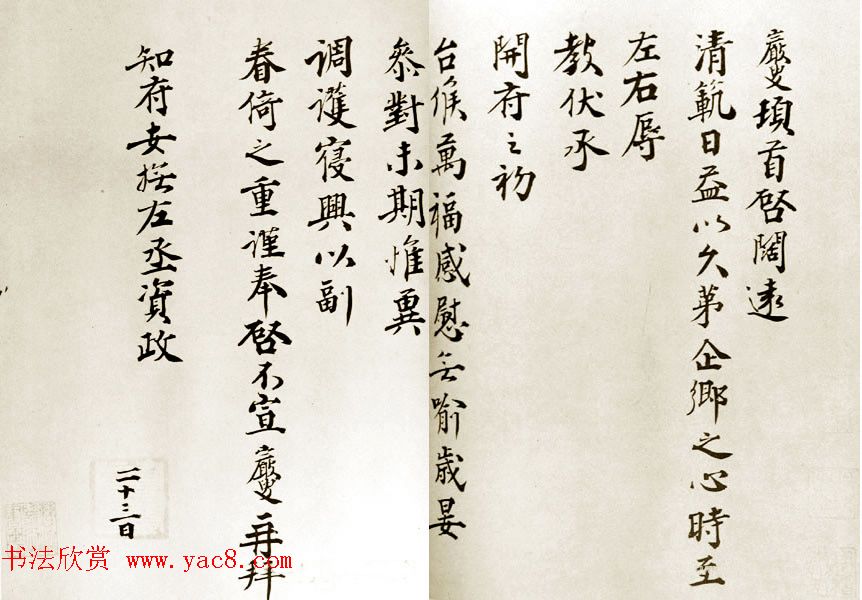 巖叟頓首啓闊遠
清範日益以久第企鄉之心時至
左右辱
教伏承
開府之初
台候萬福感慰無喻歲晏
叅對未期惟冀
調護寢興以副
眷倚之重謹奉啓不宣巖叟再拜
知府安撫左丞資政
二十三日
书法欣赏 www.yac8.com